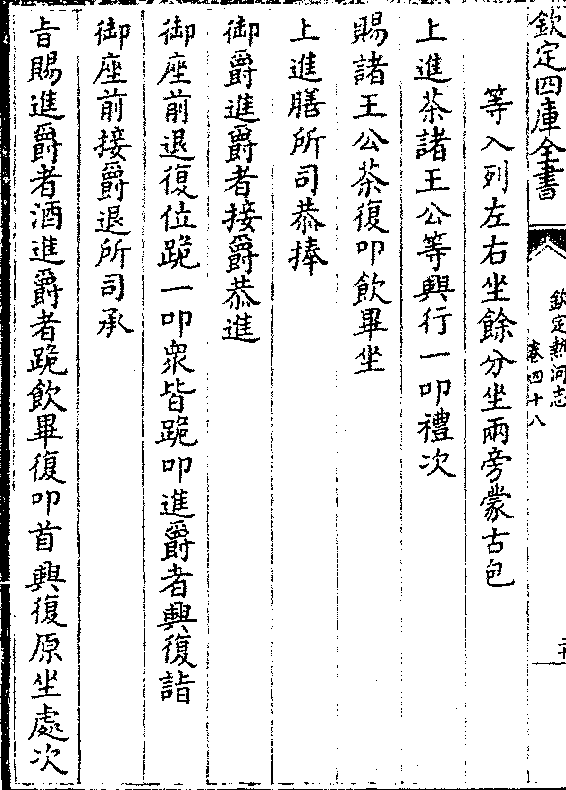 欽定四庫全書
欽定熱河志
卷四十八
等入列左右坐餘分坐兩旁蒙古包
上進茶諸王公等興行一叩禮次
賜諸王公茶復叩飲畢坐
上進膳所司恭捧
御爵進爵者接爵恭進
御座前退復位跪一叩衆皆跪叩進爵者興復詣
御座前接爵退所司承
旨賜進爵者酒進爵者跪飲畢復叩首興復原坐處次